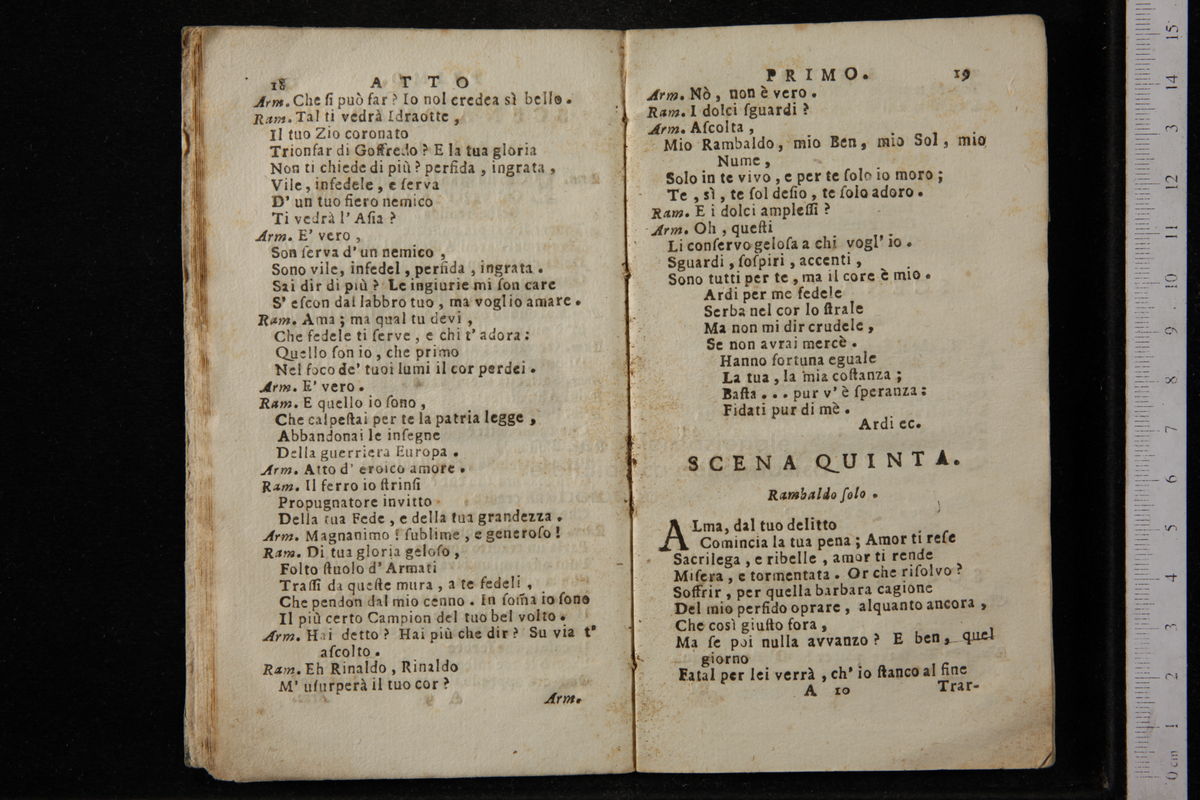 18 ATTO
Arm. Che ſi può far? Io nol credea sì bello.
Ram. Tal ti vedrà Idraotte,
Il tuo Zio coronato
Trionfar di Goffredo? E la tua gloria
Non ti chiede di più? perfida, ingrata,
Vile, infedele, e ſerva
D' un tuo fiero nemico
Ti vedrà l' Aſia?
Arm. E' vero,
Son ſerva d' un nemico,
Sono vile, infedel, perfida, ingrata.
Sai dir di più? Le ingiurie mi ſon care
S' eſcon dal labbro tuo, ma voglio amare.
Ram. Ama; ma qual tu devi,
Che fedele ti ſerve, e chi t' adora:
Quello ſon io, che primo
Nel foco de' tuoi lumi il cor perdei.
Arm. E' vero.
Ram. E quello io ſono,
Che calpeſtai per te la patria legge,
Abbandonai le inſegne
Della guerriera Europa.
Arm. Atto d' eroico amore.
Ram. Il ferro io ſtrinſi
Propugnatore invitto
Della tua Fede, e della tua grandezza.
Arm. Magnanimo! ſublime, e generoſo!
Ram. Di tua gloria geloſo,
Folto ſtuolo d' Armati
Traſſi da queſte mura, a te fedeli,
Che pendon dal mio cenno. In ſom̃a io ſono
Il più certo Campion del tuo bel volto.
Arm. Hai detto? Hai più che dir? Su via t'
aſcolto.
Ram. Eh Rinaldo, Rinaldo
M' uſurperà il tuo cor?
Arm.
PRIMO. 19
Arm. Nò, non è vero.
Ram. I dolci ſguardi?
Arm. Aſcolta,
Mio Rambaldo, mio Ben, mio Sol, mio
Nume,
Solo in te vivo, e per te ſolo io moro;
Te, sì, te ſol deſio, te ſolo adoro.
Ram. E i dolci ampleſſi?
Arm. Oh, queſti
Li conſervo geloſa a chi vogl' io.
Sguardi, ſoſpiri, accenti,
Sono tutti per te, ma il core è mio.
Ardi per me fedele
Serba nel cor lo ſtrale
Ma non mi dir crudele,
Se non avrai mercè.
Hanno fortuna eguale
La tua, la mia coſtanza;
Baſta... pur v' è ſperanza:
Fidati pur di mè.
Ardi ec.
SCENA QUINTA.
Rambaldo ſolo.
ALma, dal tuo delitto
Comincia la tua pena; Amor ti reſe
Sacrilega, e ribelle, amor ti rende
Miſera, e tormentata. Or che riſolvo?
Soffrir, per quella barbara cagione
Del mio perfido oprare, alquanto ancora,
Che così giuſto fora,
Ma ſe poi nulla avvanzo? E ben, quel
giorno
Fatal per lei verrà, ch' io ſtanco al fine
A 10 Trar-
0 cm 1 2 3 4 5 6 7 8 9 10 11 12 13 14 15